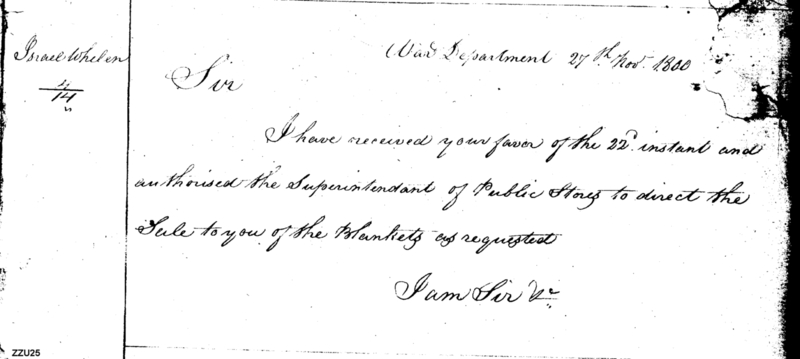 Israel Whelen
4
14
War Department 27th. Nov. 1800
Sir
I have received your favor of the 22d. instant and
authorised the Superintendant of Public Stores to direct the
Sale to you of the Blankets as requested
I am Sir &c
ZZU25